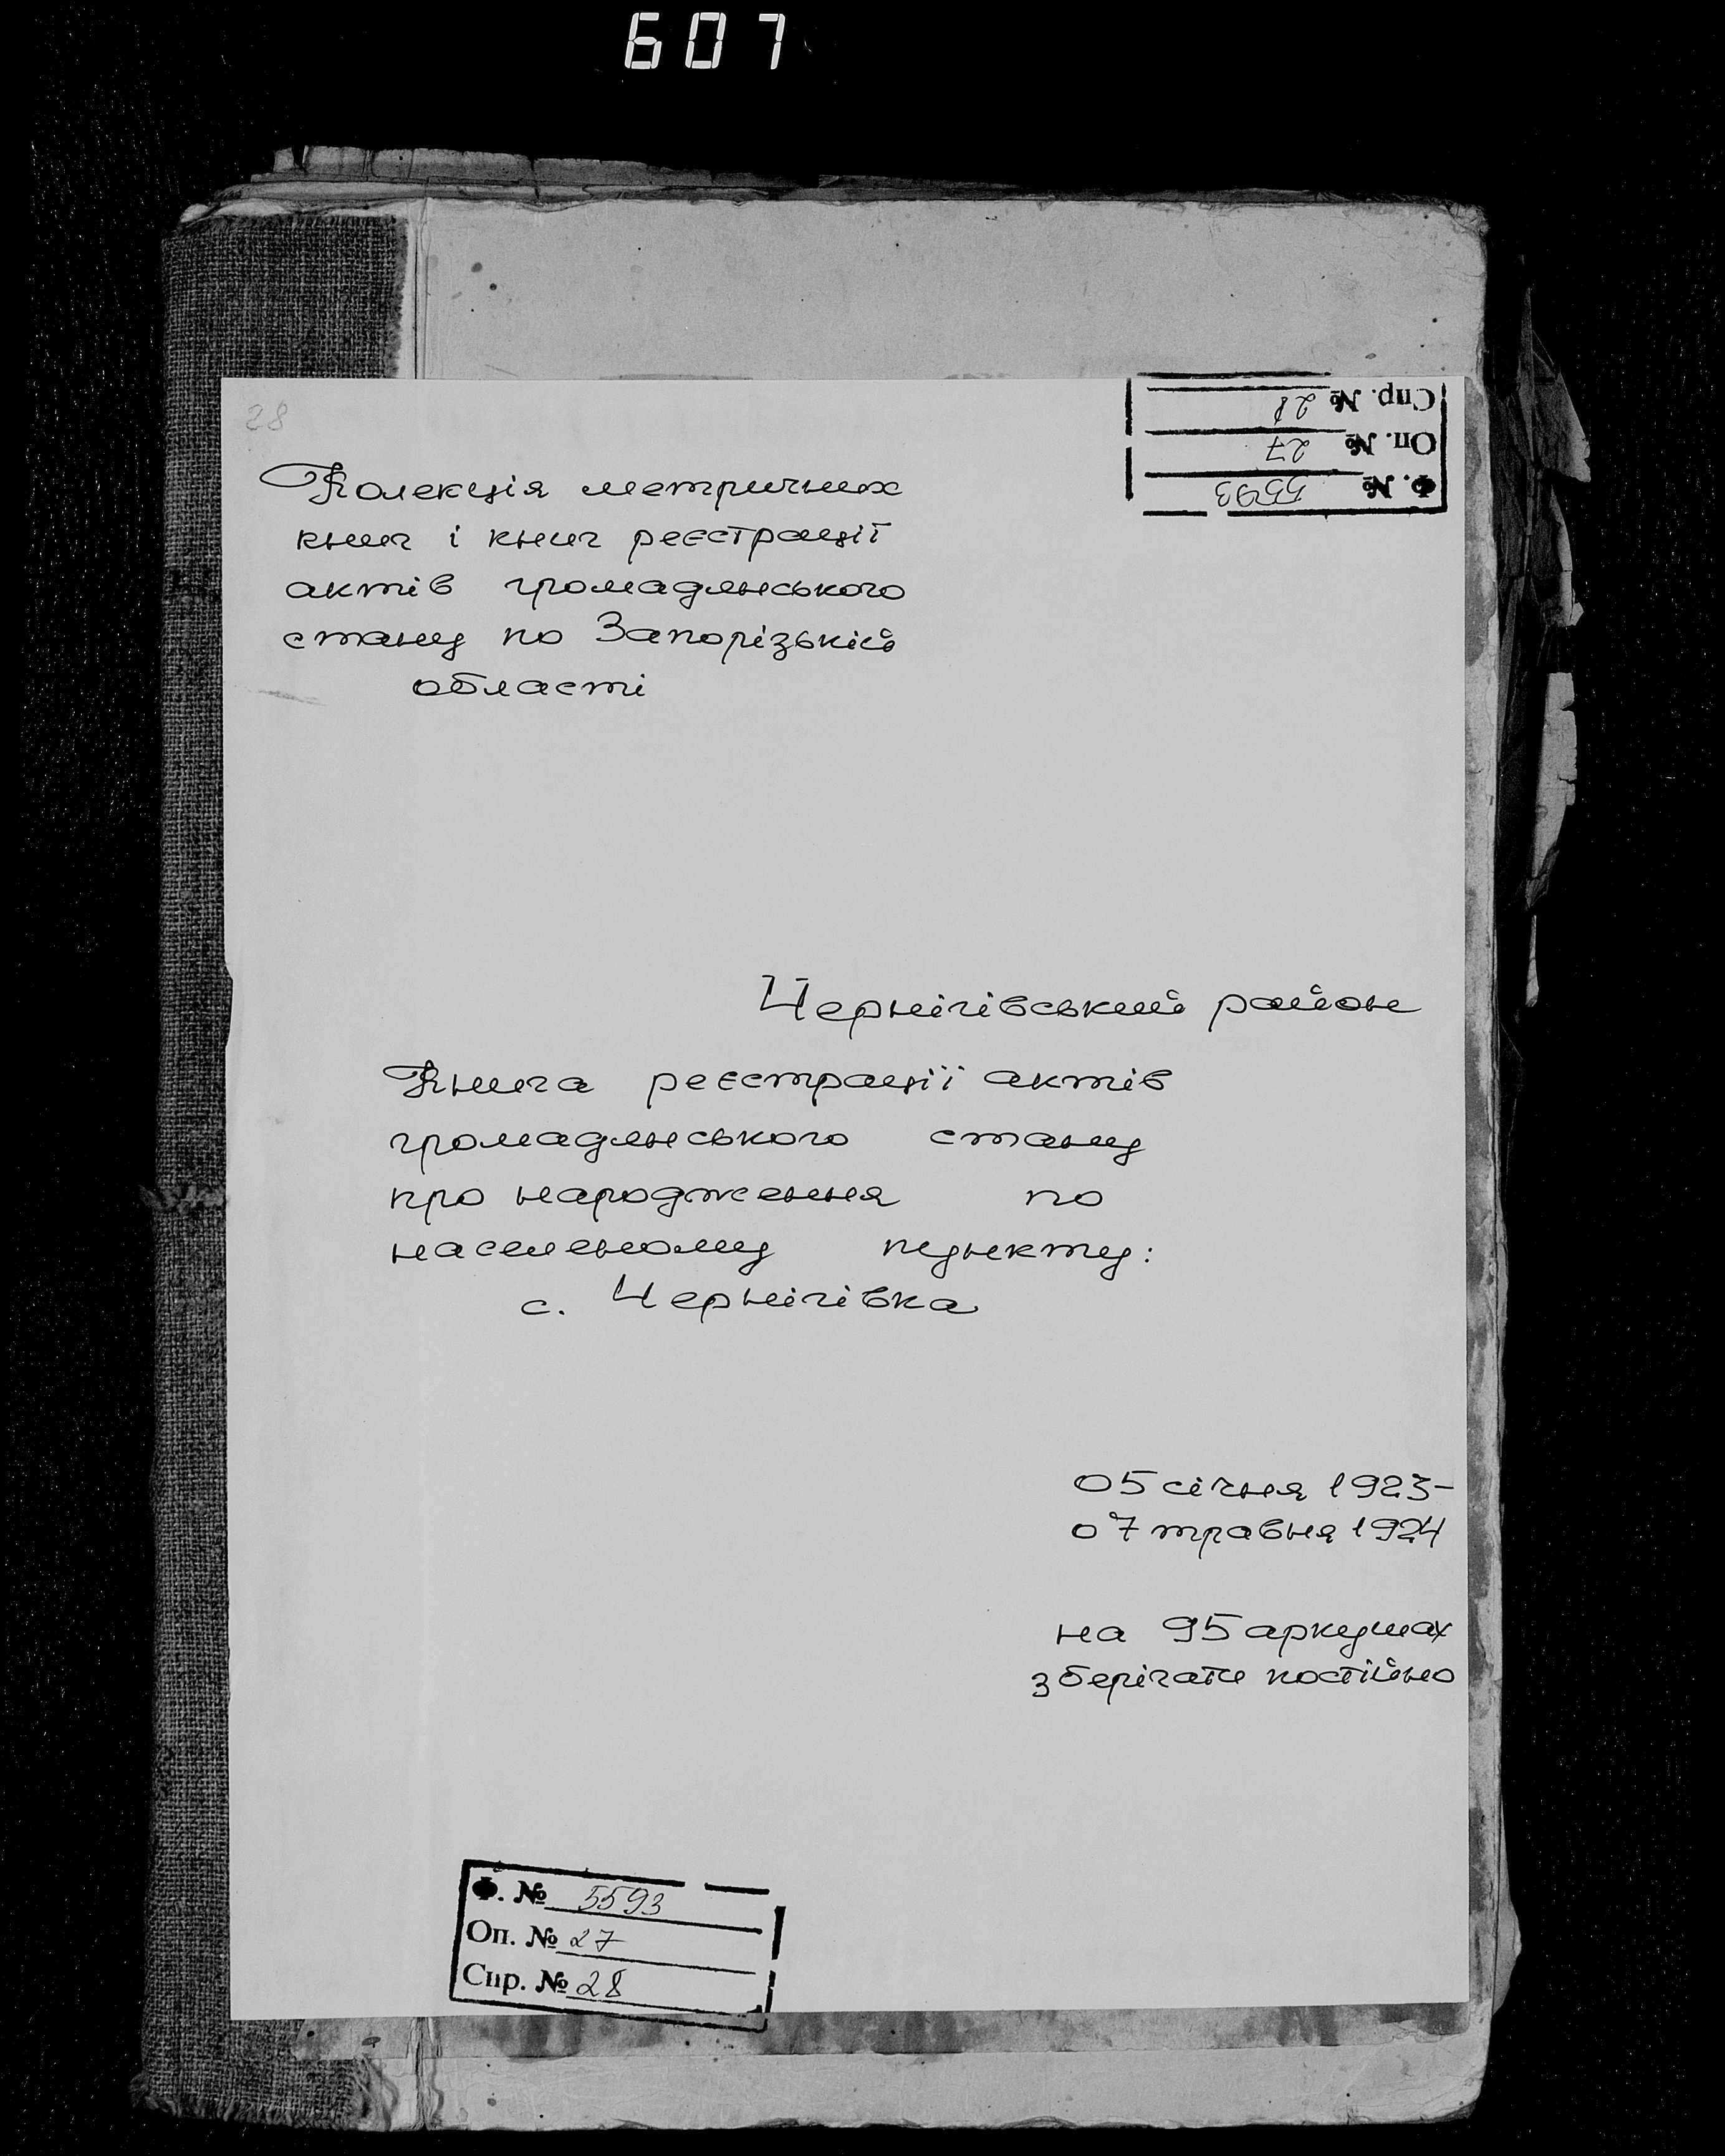 607
28
Спр. № 28
Оп. № 27
Ф. № 5593
Колекція метричних
книг і книг реєстрації
актів громадянського
стану по Запорізькій
області
Чернігівський район
Книга реєстрації актів
громадянського стану
про народження по
населеному пункту:
с. Чернігівка
05 січня 1923-
07 травня 1924
на 95 аркушах
зберігати постійно
Ф. № 5593
Оп. № 27
Спр. № 28